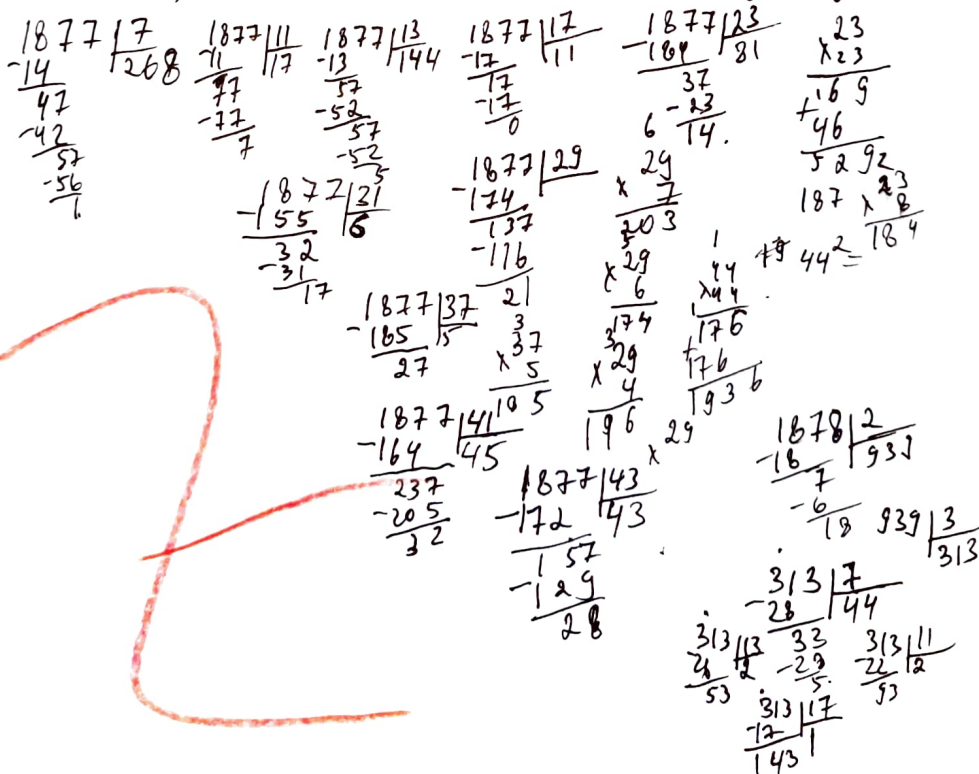 1877 | 7
-14 268
47
-42
57
-56
1
1877 | 11
-11 17
77
-77
7
1877 | 13
-13 144
57
-52
57
-52
5
1877 | 17
-17 11
17
-17
0
1877 | 23
-184 81
37
-23
14.
23
x23
169
+
46
529
1877 | 31
-155 6
32
-31
17
1877 | 29
-174
137
-116
21
6
29
x 7
203
5
29
x 6
174
3
29
x 4
196
x 29
187
2
23
x 8
184
44² =
1
44
x44
176
+
176
1936
1877 | 37
-185 5
27
3
37
x 5
185
1877 | 41
-164 45
237
-205
32
1877 | 43
-172 43
157
-129
28
1878 | 2
-18 939
7
-6
18
939 | 3
313
313 | 7
-28 44
33
-28
5.
313 | 13
26 2
53
313 | 11
-22 2
93
313 | 17
-17 1
143